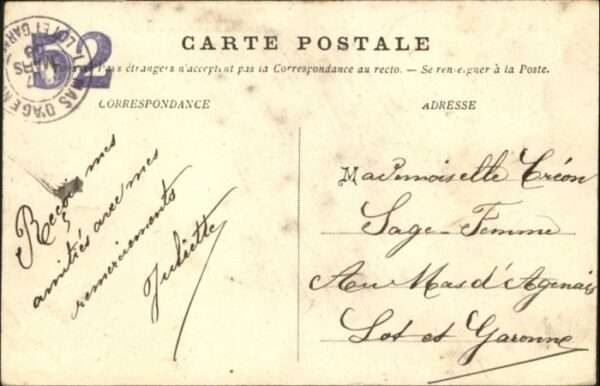 CARTE POSTALE
Pays étrangers n'acceptent pas la Correspondance au recto. — Se renseigner à la Poste.
CORRESPONDANCE
ADRESSE
52
MAS D'AGEN
LOT ET GAR
MARS
Reçois mes
amitiés avec mes
remerciements
Juliette
Mademoiselle Créon
Sage-Femme
Au Mas d'Agenais
Lot et Garonne